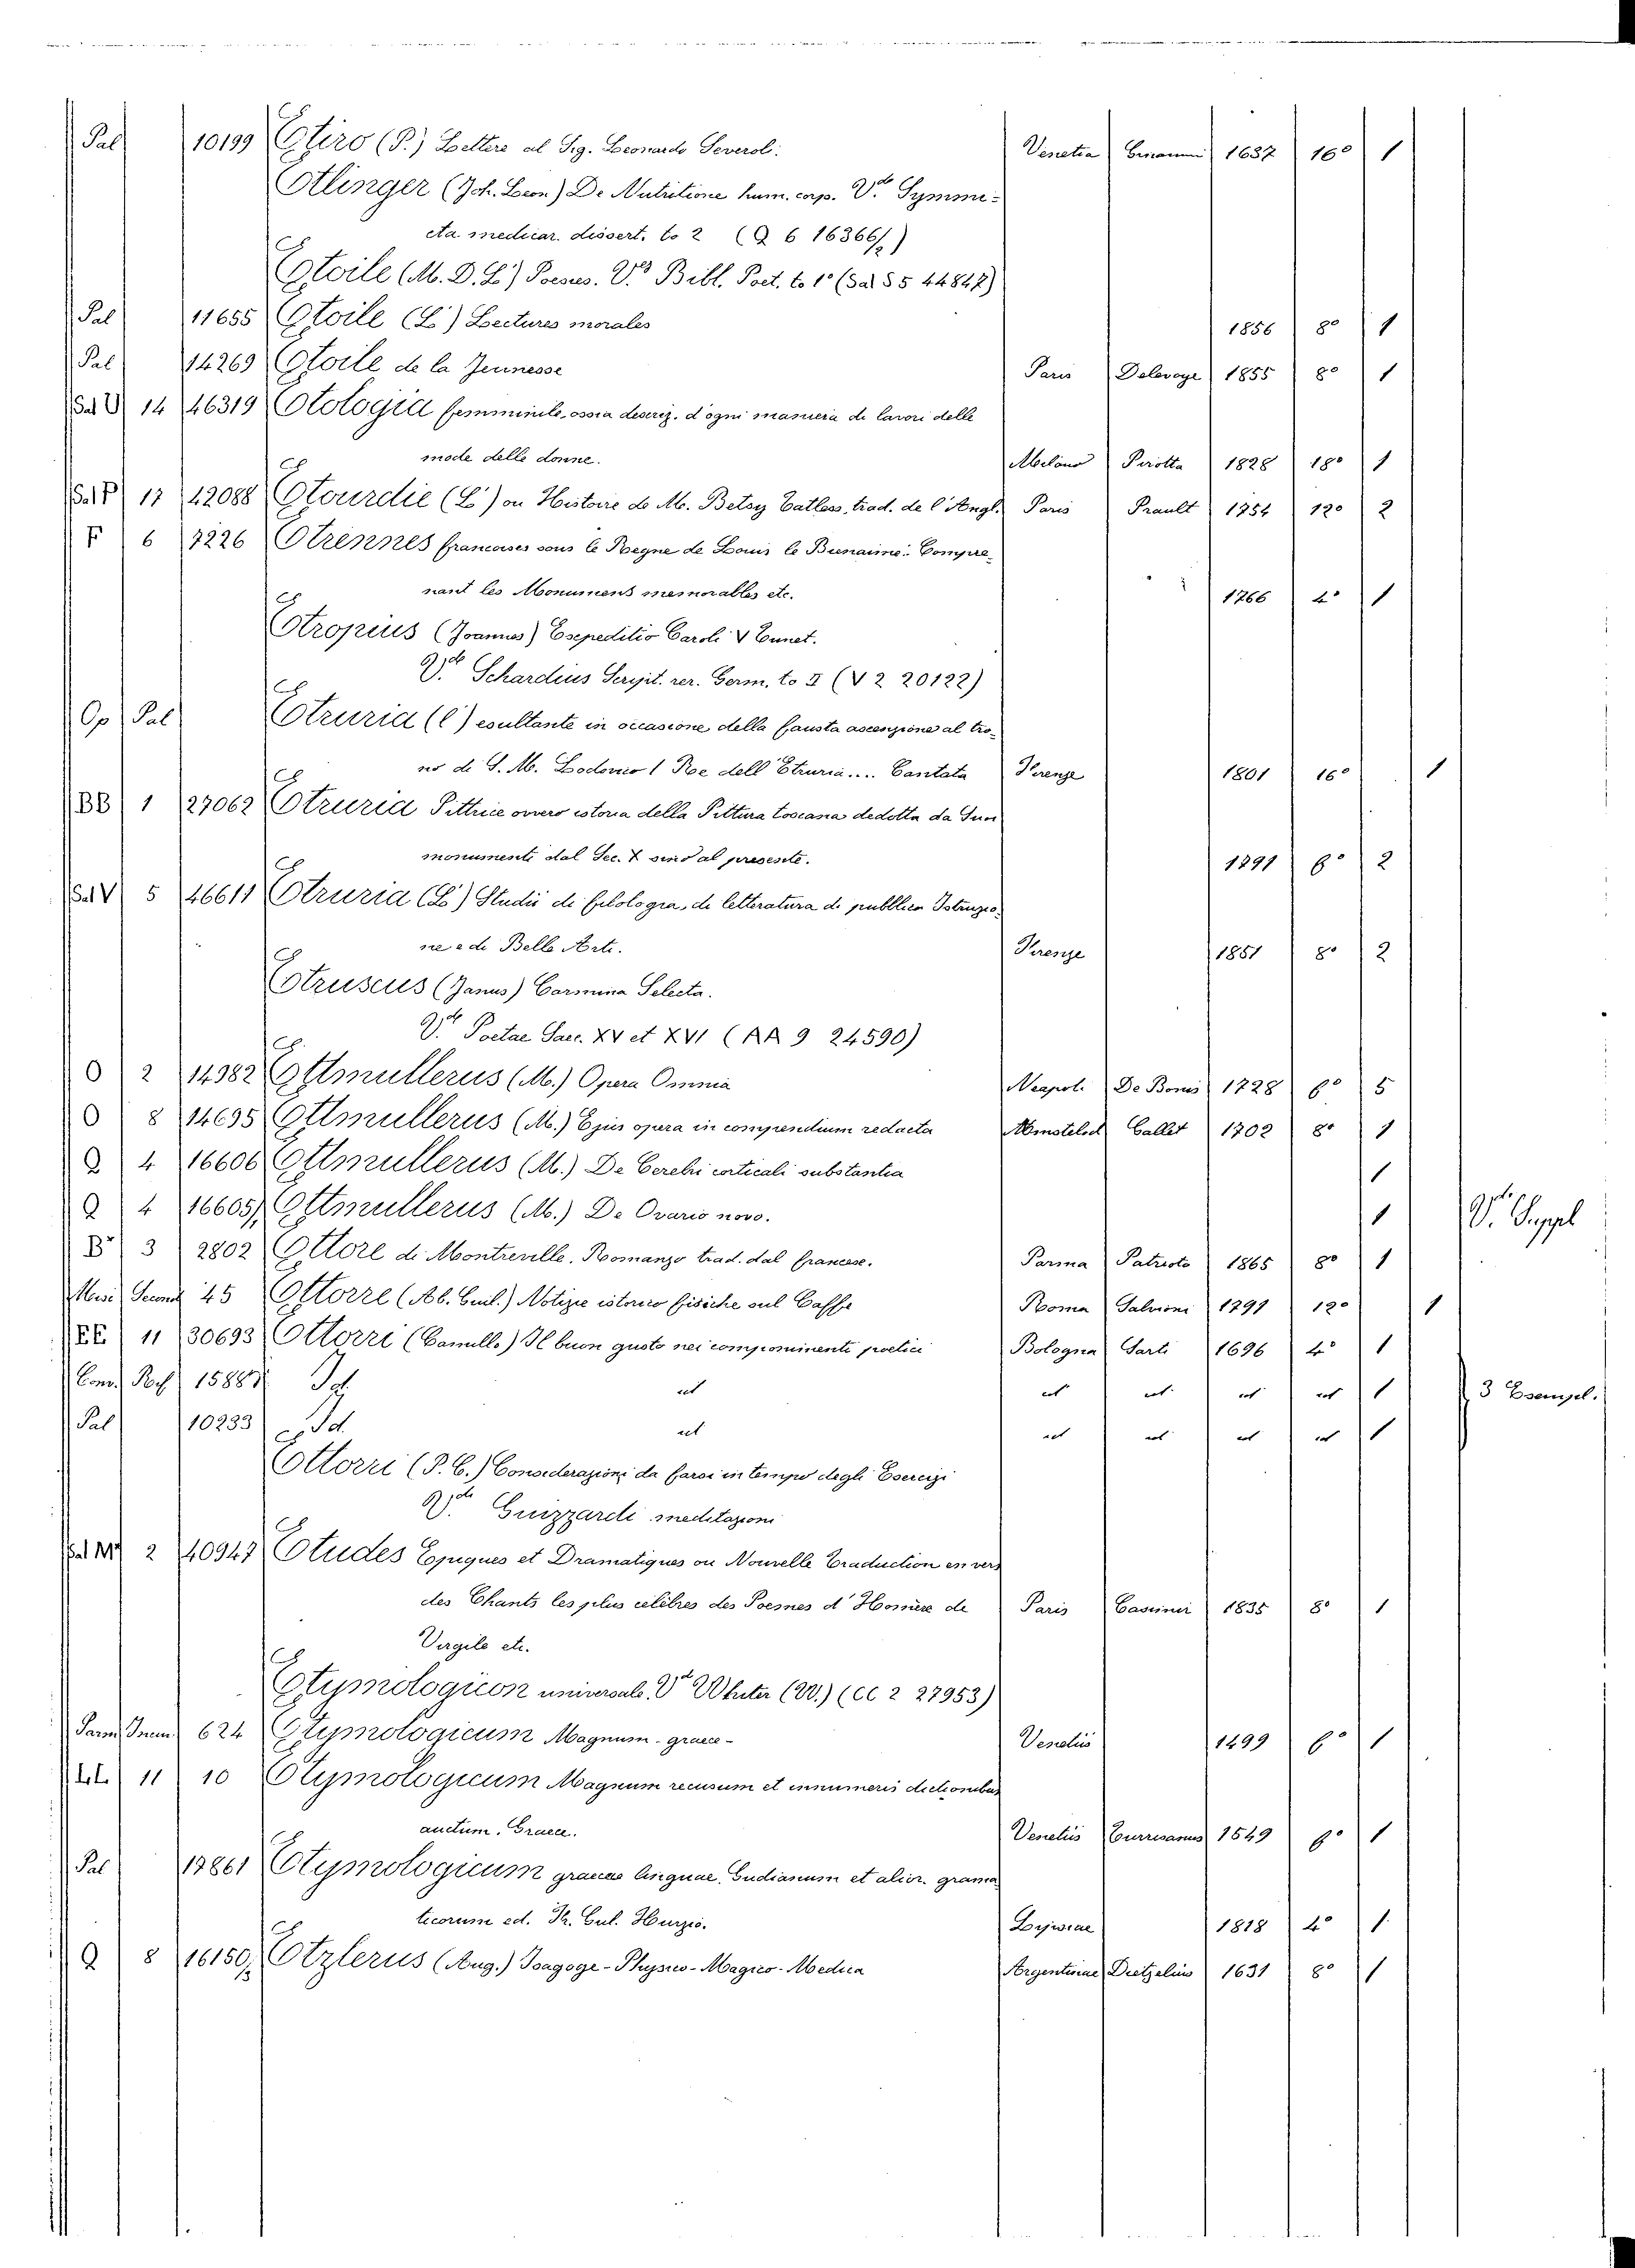 Pal 10199 Etiro (P.) Lettere al Sig. Leonardo Severoli. Venetia 1637 16º 1
Etlinger (Joh. Leon) De Nutritione hum. corp. V.de Symmi-
cta medicar. dissert. to 2 (Q 6 16366/2)
Etoile (M. D. L') Poesies. V.de Bibl. Poet. to 1º (Sal S 5 44847)
Pal 11655 Etoile (L') Lectures morales 1856 8º 1
Pal 14269 Etoile de la Jeunesse Paris Delavoye 1855 8º 1
Sal U 14 46319 Etologia femminile, ossia descriz. d'ogni maniera di lavori delle
mode delle donne. Milano Pirotta 1828 18º 1
Sal P 17 42088 Etourdie (L') ou Histoire de M. Betsy Tatless, trad. de l'Angl. Paris Prault 1754 12º 2
F 6 7226 Etrennes francoises sous le Regne de Louis le Bienaimé: Compre-
nant les Monumens memorables etc. 1766 4º 1
Etropius (Joannes) Expeditio Caroli V Tunet.
V.de Schardius Script. rer. Germ. to II (V 2 20122)
Op Pal Etruria (l') esultante in occasione della fausta ascenzione al tro-
no di S. M. Lodovico 1 Re dell'Etruria.... Cantata Firenze 1801 16º 1
BB 1 27062 Etruria Pittrice ovvero istoria della Pittura toscana dedotta da suoi
monumenti dal Sec. X sino al presente. 1791 fº 2
Sal V 5 46611 Etruria (L') Studii di filologia, di letteratura di pubblica Istruzio-
ne e di Belle Arti. Firenze 1851 8º 2
Etruscus (Janus) Carmina Selecta.
V.de Poetae Saec. XV et XVI (AA 9 24590)
O 2 14382 Ettmullerus (M.) Opera Omnia Neapoli De Bonis 1728 fº 5
O 8 14695 Ettmullerus (M.) Ejus opera in compendium redacta Amstelod Gallet 1702 8º 1
Q 4 16606 Ettmullerus (M.) De Cerebri corticali substantia 1
Q 4 16605/ Ettmullerus (M.) De Ovario novo. 1 V.de Suppl
B 3 2802 Ettore di Montreville. Romanzo trad. dal francese. Parma Patriota 1865 8º 1
45 Ettorre (Ab. Emil.) Notizie istorico fisiche sul Caffe Roma Salvioni 1791 12º 1
EE 11 30693 Ettorri (Camillo) Il buon gusto nei componimenti poetici Bologna Sarti 1696 4º 1
15887 Id. ut ut ut ut ut 1 3 Esempl.
Pal 10233 Id. ut ut ut ut ut 1
Ettorri (P. C.) Considerazioni da farsi in tempo degli Esercizi
V.de Guizzardi meditazioni
Sal M 2 40947 Etudes Epiques et Dramatiques ou Nouvelle Traduction en vers
des Chants les plus celèbres des Poemes d'Homère de Paris 1835 8º 1
Virgile etc.
Etymologicon universale. V.de Whiter (W.) (CC 2 27953)
624 Etymologicum Magnum - graece - Venetiis 1499 fº 1
LL 11 10 Etymologicum Magnum recusum et innumeris dictionibus
auctum. Graece. Venetiis Turrisanus 1549 fº 1
Pal 17861 Etymologicum graecae linguae, Gudianum et alior. grama
ticorum ed. Fr. Gul. Sturzio. Lipsiae 1818 4º 1
Q 8 16150 Etzlerus (Aug.) Isagoge-Physico-Magico-Medica Argentinae Dietzelius 1631 8º 1